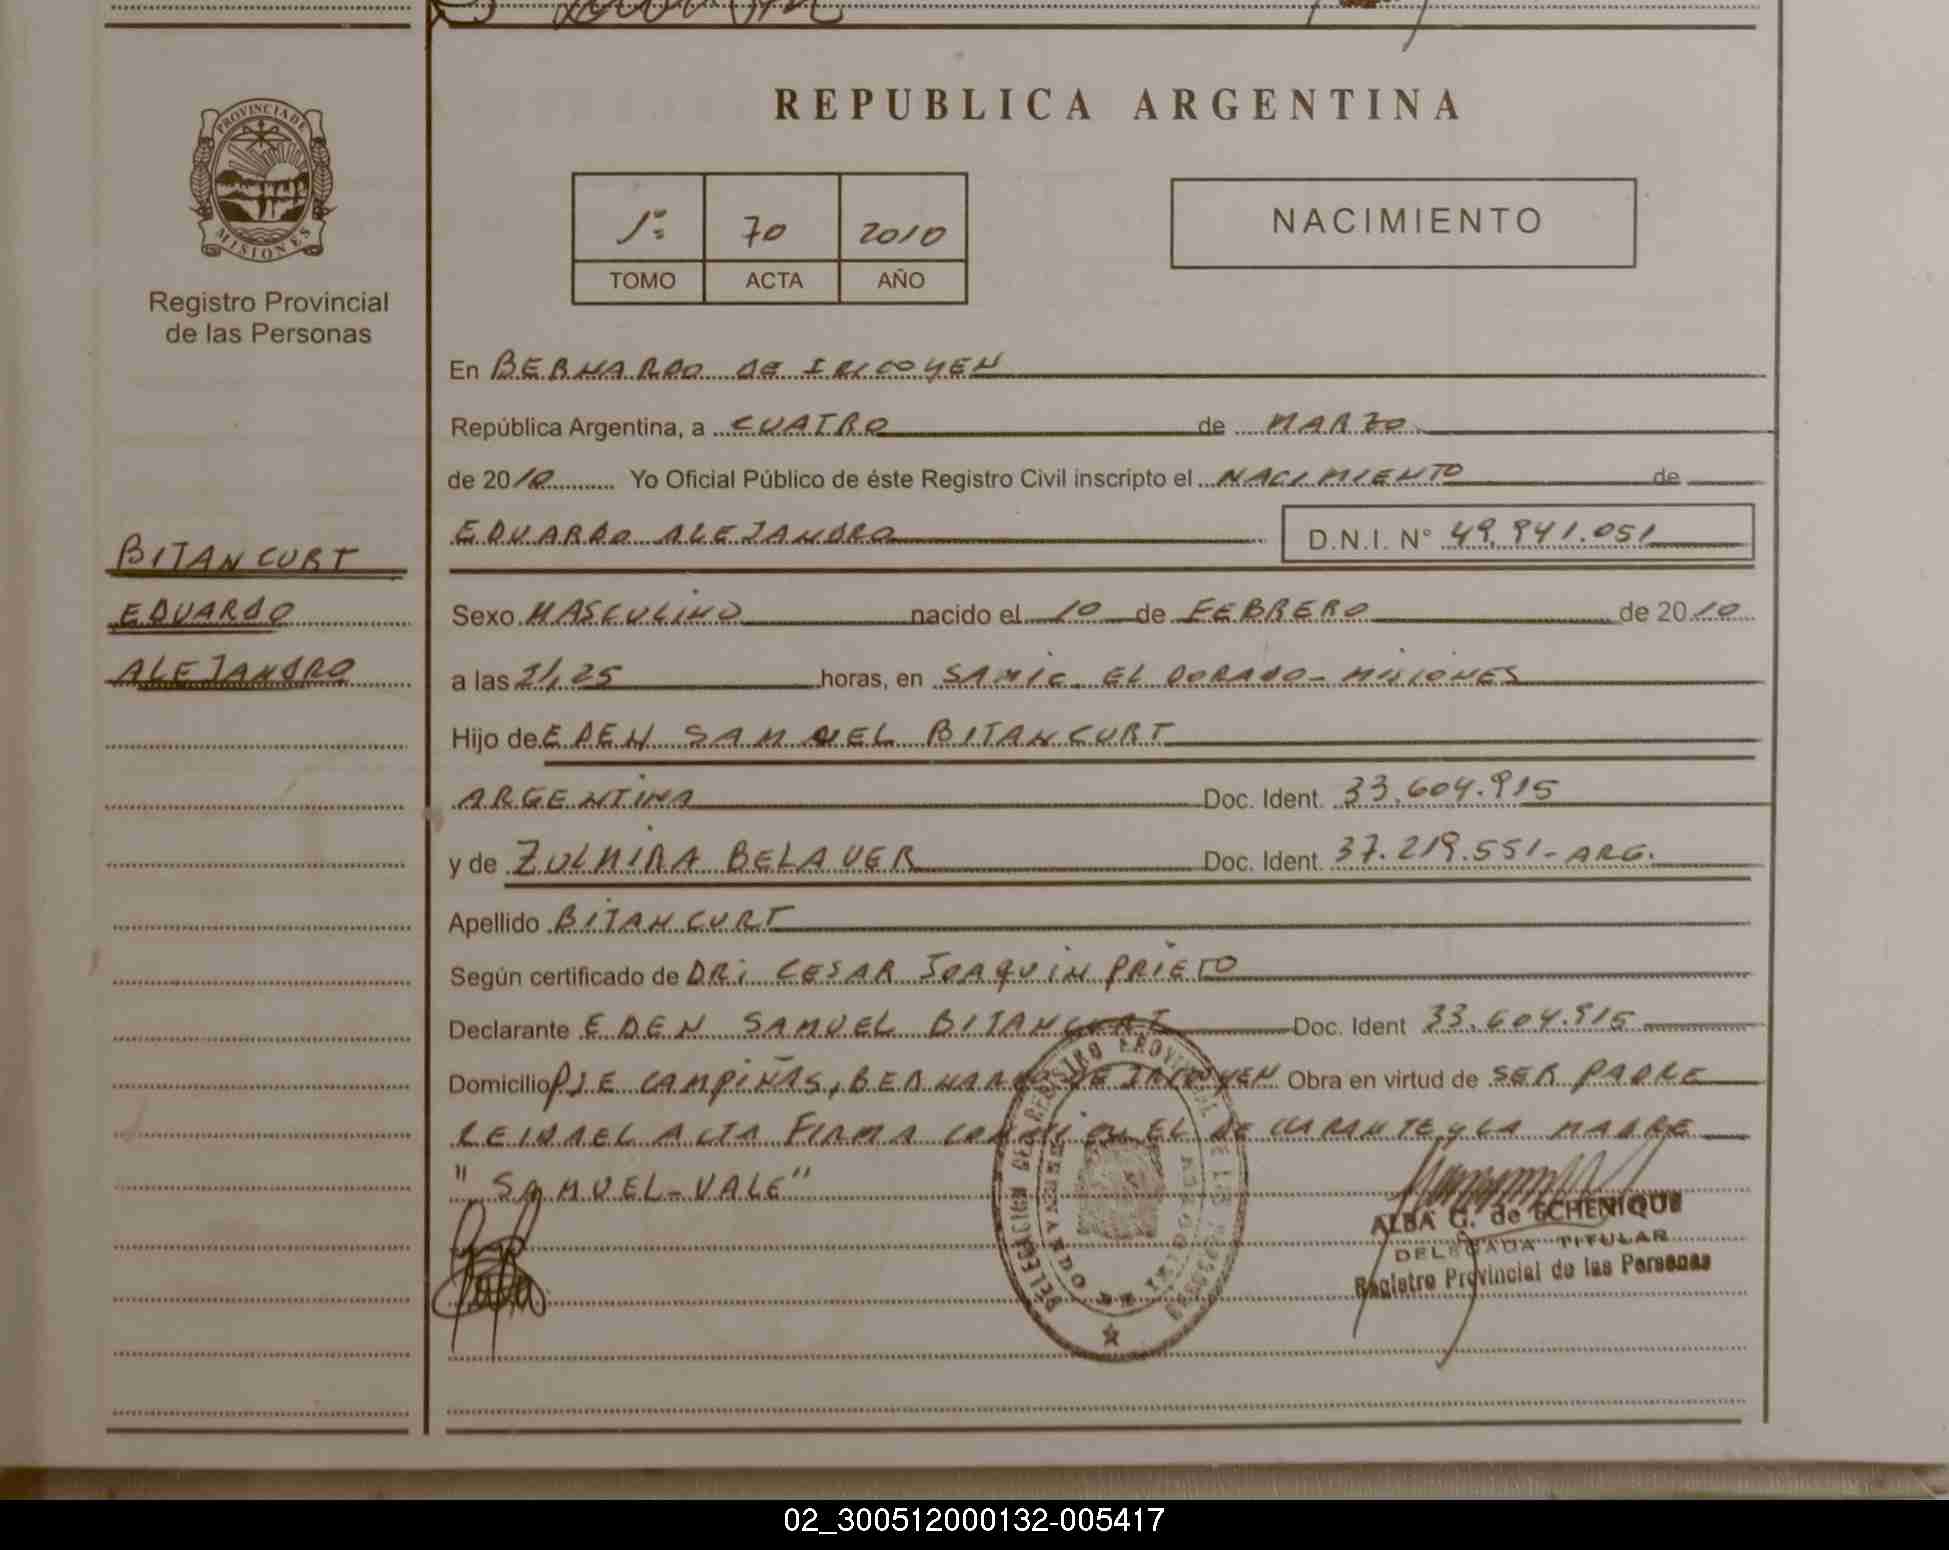 PROVINCIA DE
MISIONES
Registro Provincial
de las Personas
REPUBLICA ARGENTINA
1º 70 2010
TOMO ACTA AÑO
NACIMIENTO
En BERNARDO DE IRIGOYEN
República Argentina, a CUATRO de MARZO
de 2010 Yo Oficial Público de éste Registro Civil inscripto el NACIMIENTO de
EDUARDO ALEJANDRO D.N.I. N° 49.941.051
BITANCURT
EDUARDO
ALEJANDRO
Sexo MASCULINO nacido el 10 de FEBRERO de 2010
a las 21,25 horas, en SAMIC. EL DORADO- MISIONES
Hijo de EDEN SAMUEL BITANCURT
ARGENTINA Doc. Ident. 33.604.915
y de ZULMIRA BELAVER Doc. Ident. 37.219.551- ARG.
Apellido BITANCURT
Según certificado de DR: CESAR JOAQUIN PRIETO
Declarante EDEN SAMUEL BITANCURT Doc. Ident 33.604.915
Domicilio PJE CAMPIÑAS, BERNARDO DE IRIGOYEN Obra en virtud de SER PADRE
ACTA FIRMA EL DECLARANTE Y LA MADRE
"SAMUEL-VALE"
DELEGACION DEL REGISTRO PROVINCIAL DE LAS PERSONAS
BERNARDO DE IRIGOYEN
ALBA G. de ECHENIQUE
DELEGADA TITULAR
Registro Provincial de las Personas
02_300512000132-005417